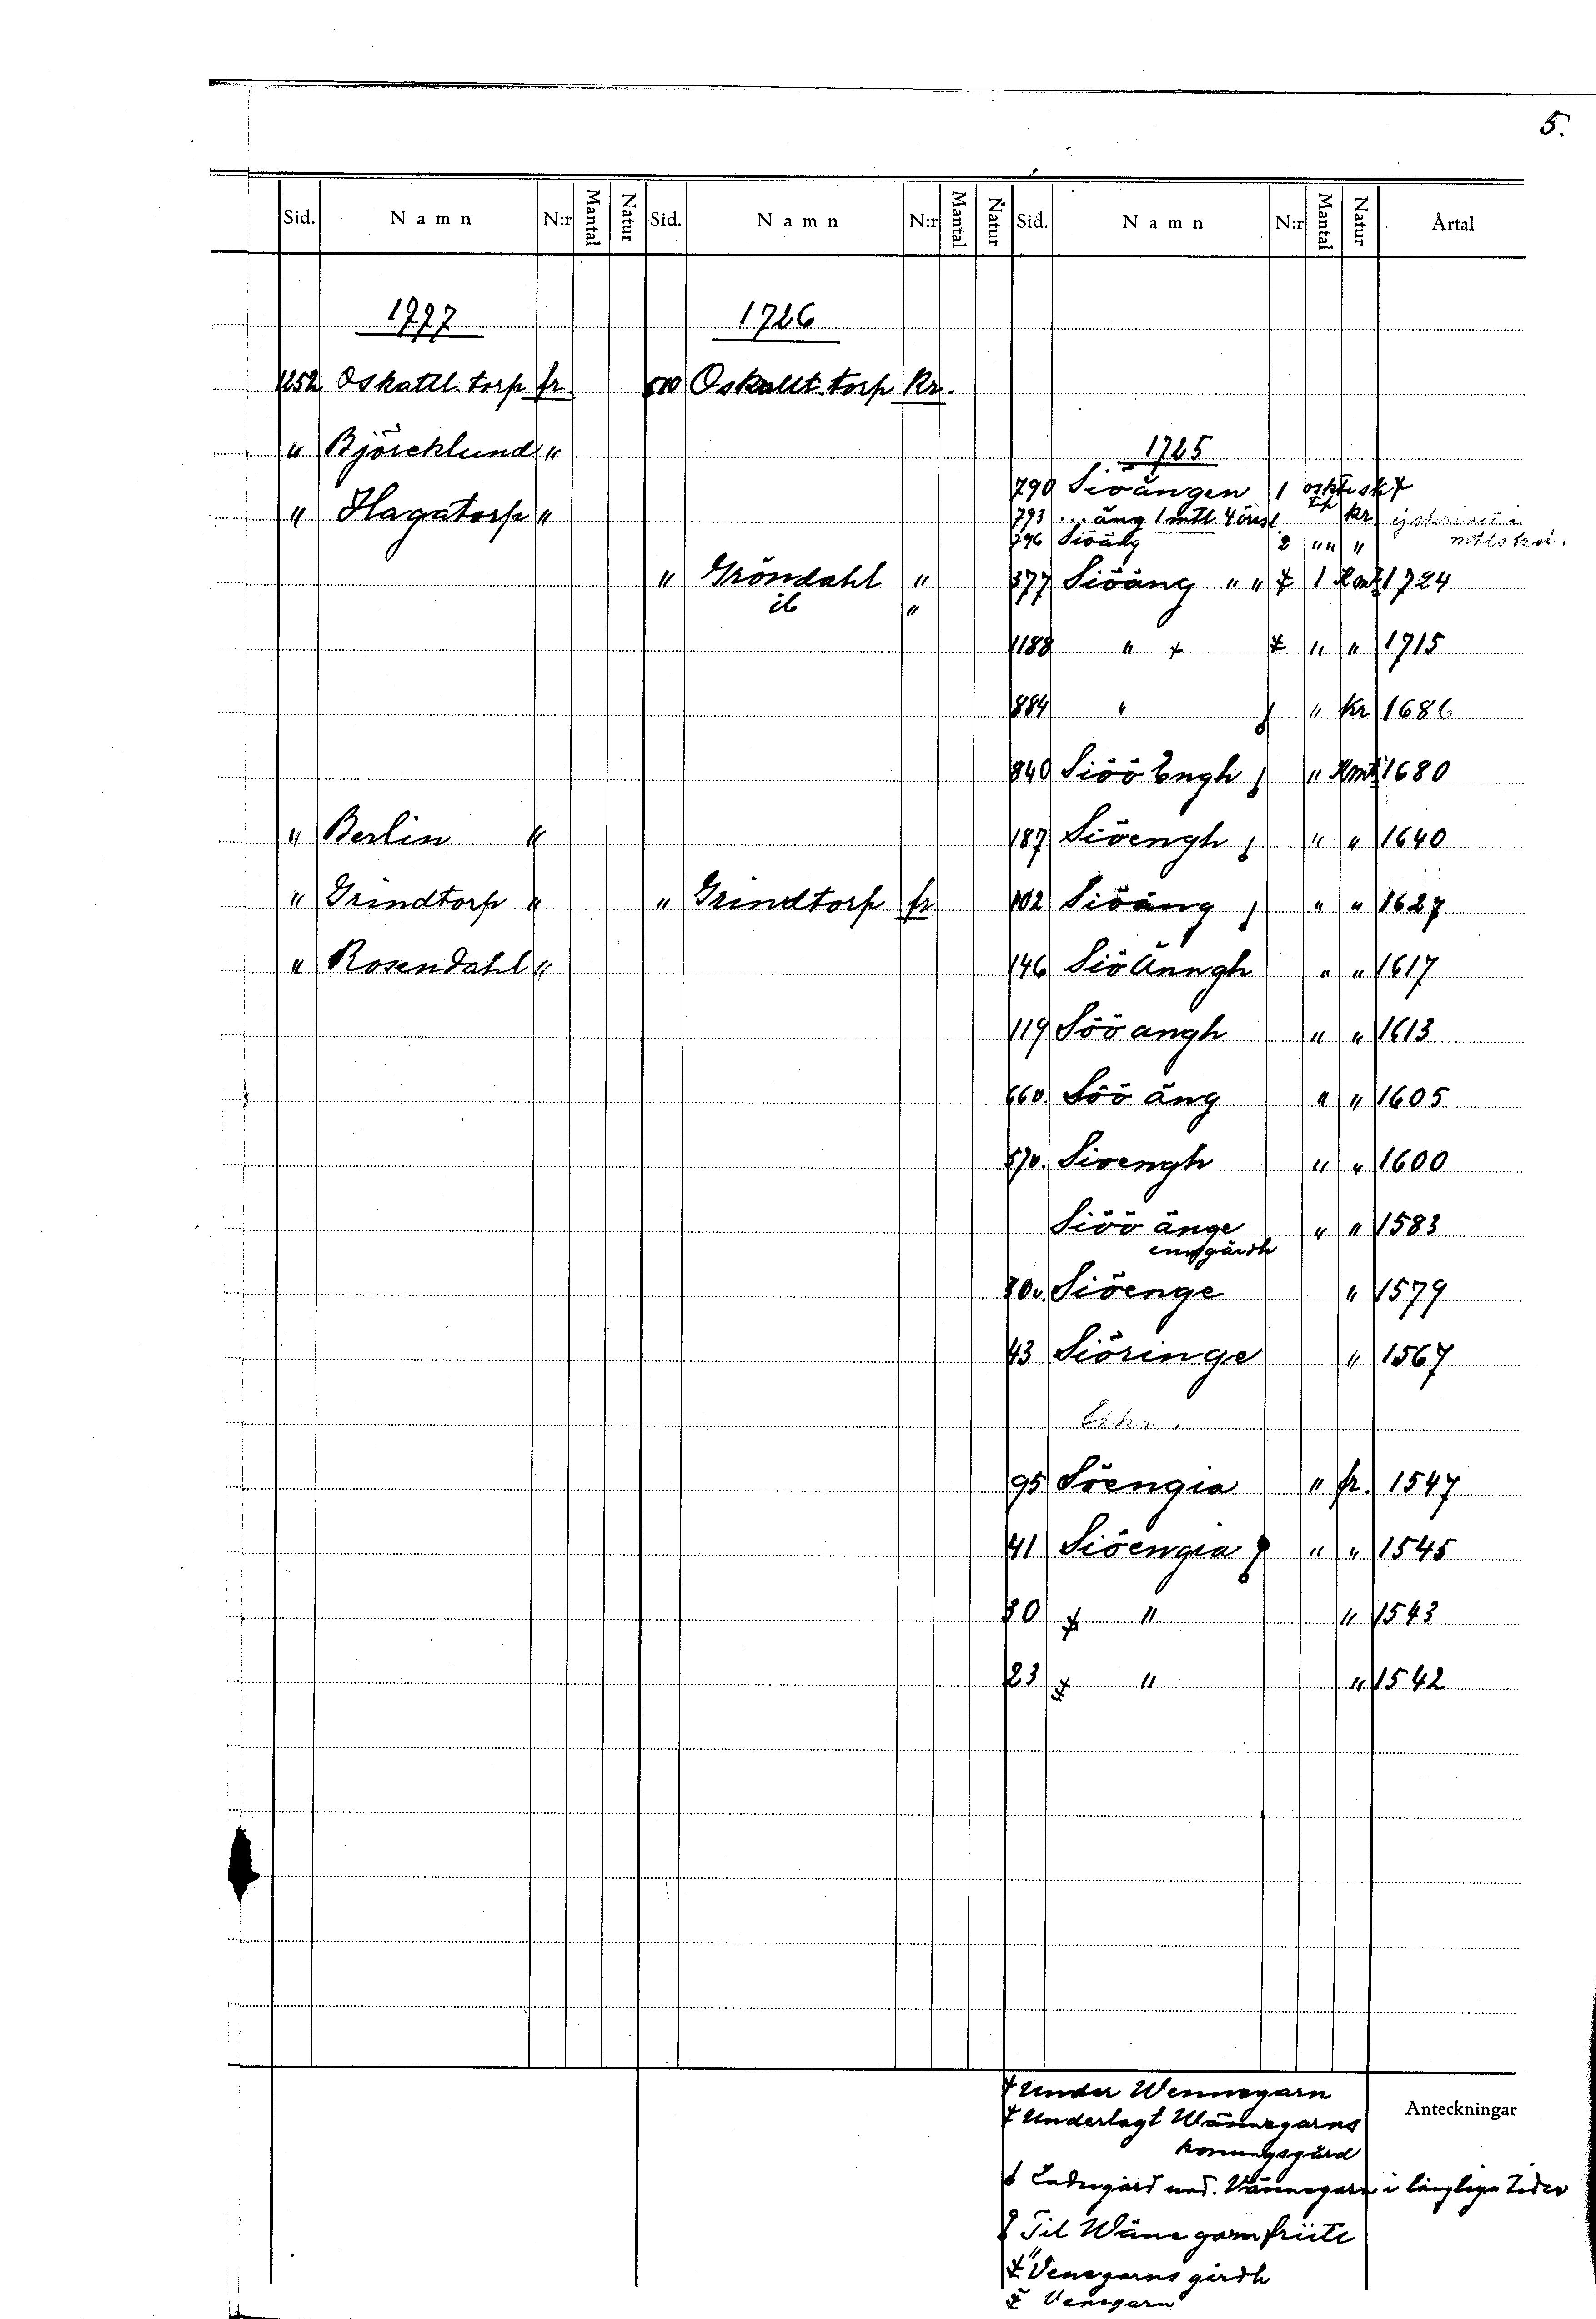 5.
Sid. Namn N:r Mantal Natur Sid. Namn N:r Mantal Natur Sid. Namn N:r Mantal Natur Årtal
1777 1726
1252 Oskattl. torp fr. 510 Oskatlt. torp Kr.
" Björcklund "
1725
790 Siöängen 1
" Hagatorp "
793 ... äng 1 mtl 4 öresl kr.
796 Siöäng 2 " " "
" Gröndahl " 377 Siöäng " " 1 1724
ib "
1188 " " " 1715
884 " " Kr 1686
840 Siöö Engh " 1680
" Berlin " 187 Siöengh " " 1640
" Grindtorp " " Grindtorp fr 102 Siöäng " " 1627
" Rosendahl " 146 Siö Änngh " " 1617
119 Söö angh " " 1613
660. Söö äng " " 1605
570. Sioengh " " 1600
Siöö änge " " 1583
80v. Siöenge " 1579
43 Siöringe " 1567
95 Söengia " fr. 1547
41 Siöengia " " 1545
30 " " 1543
23 " " 1542
Under Wennegarn
Anteckningar
Underlagt Wännegarns
konungsgård
Ladugård und. Vännegarn i långliga Tider
Til Wäne garn friitt
Venegarns gårdh
Venegarn